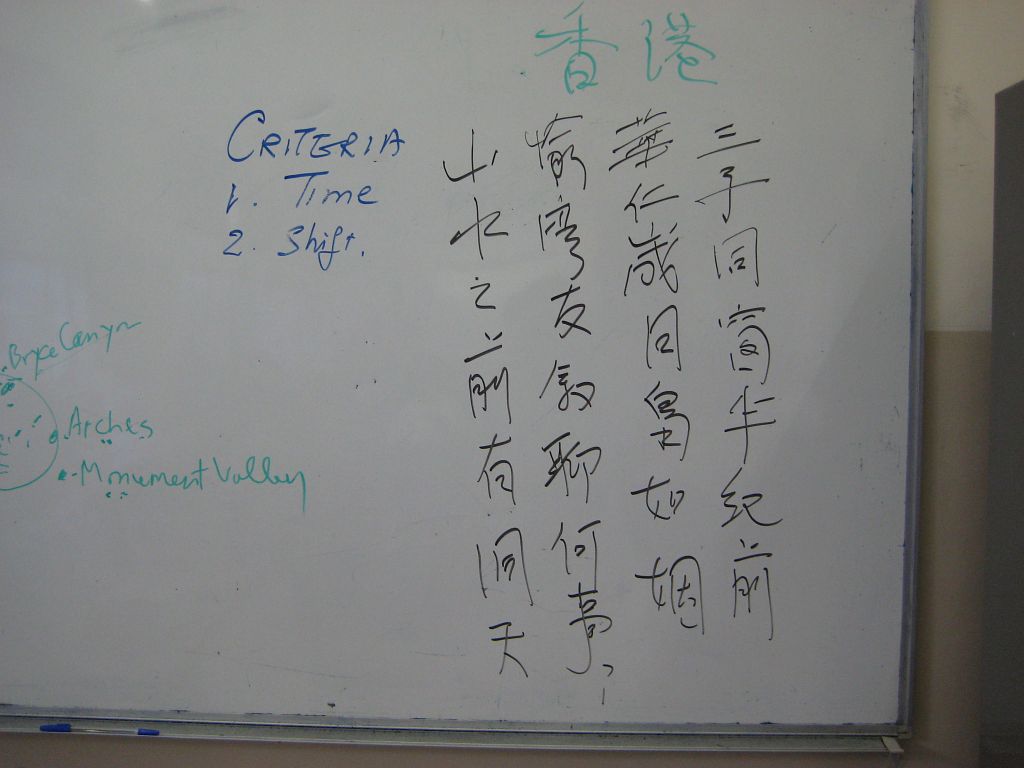 香港
CRITERIA
1. Time
2. Shift.
Bryce Canyon
Arches
Monument Valley
三子同窗半紀前
華仁歲月如
友敘聊何事?
山水之前有洞天